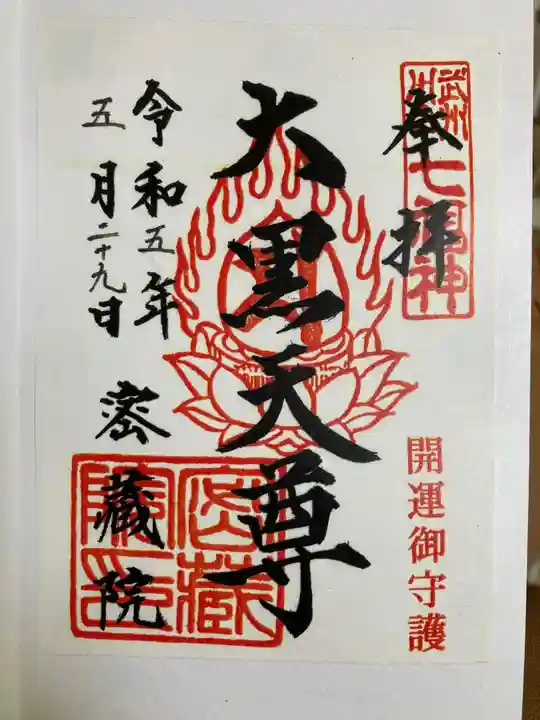 奉拝
武州川口七福神
開運御守護
大黒天尊
令和五年
五月二十九日
密蔵院
密蔵院印